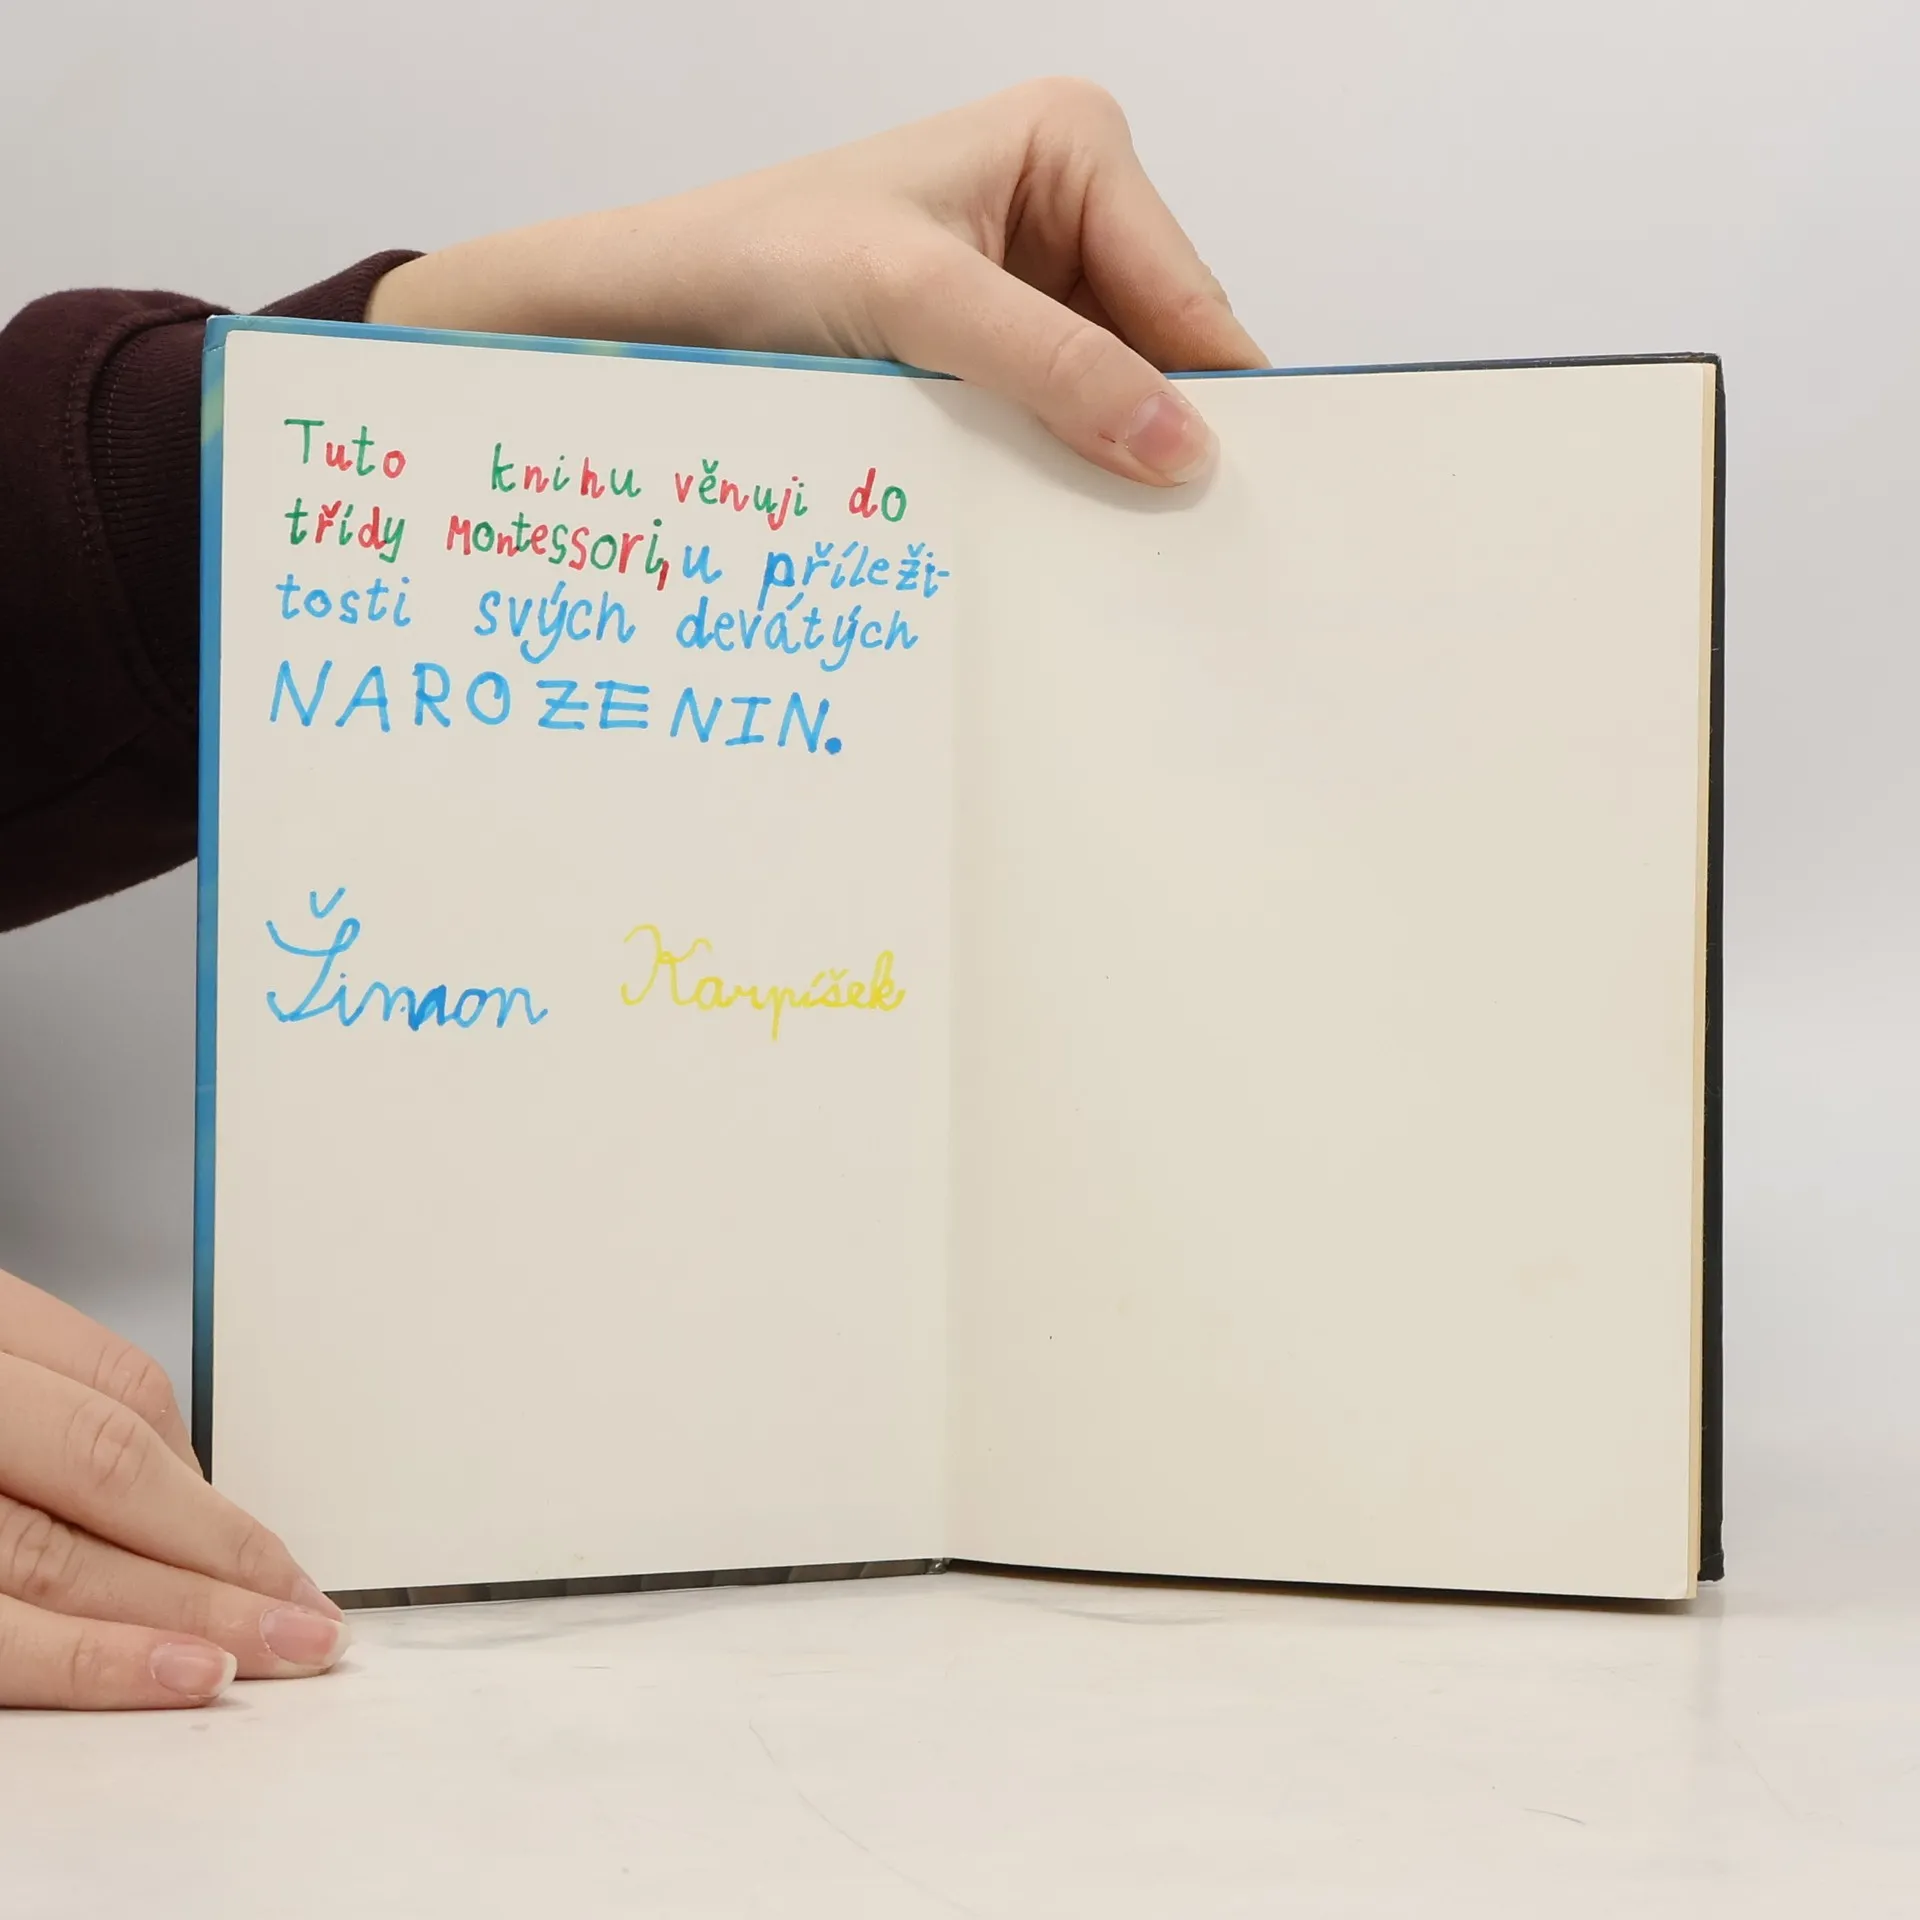 Tuto knihu věnuji do
třídy Montessori, u příleži-
tosti svých devátých
NAROZENIN.
Šimon Karpíšek